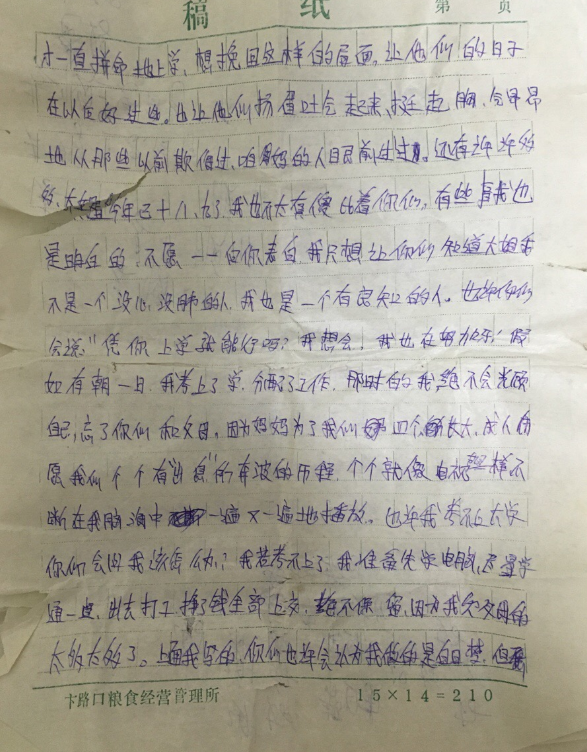 稿 纸 第 页
才一直拼命地上学、想挽回这样的局面。让他们的日子
在以后好过些。也让他们扬眉吐气起来、挺起胸、令昂
地从那些以前欺侮过、咱妈的人目前走过。还有许许多
多、大姐今年已十八、了、我也不太有傻比着你们、有些事我也
是明白的、不愿一一向你表白、我只想让你们知道大姐我
不是一个没心没肺的人、我也是一个有良知的人。也许你们
会说:"凭你上学就能行吗?我想会!我也在努力呀!假
如有朝一日、我考上了学、分配了工作、那时的我绝不会光顾
自己,忘了你们和父母。因为妈妈为了我们四个长大、成人
愿我们个个有"出息"的奔波的历程、个个就像电视一样不
断在我脑海中一遍又一遍地播放。也许我考不上大学
你们会问我该怎么办?我若考不上了、我准备先学电脑、尽量学
通一些、出去打工挣了钱全部上交、绝不保留、因为我欠父母的
太多太多了。上面我写的、你们也许会认为我做的是白日梦、但我
卞路口粮食经营管理所 15×14=210